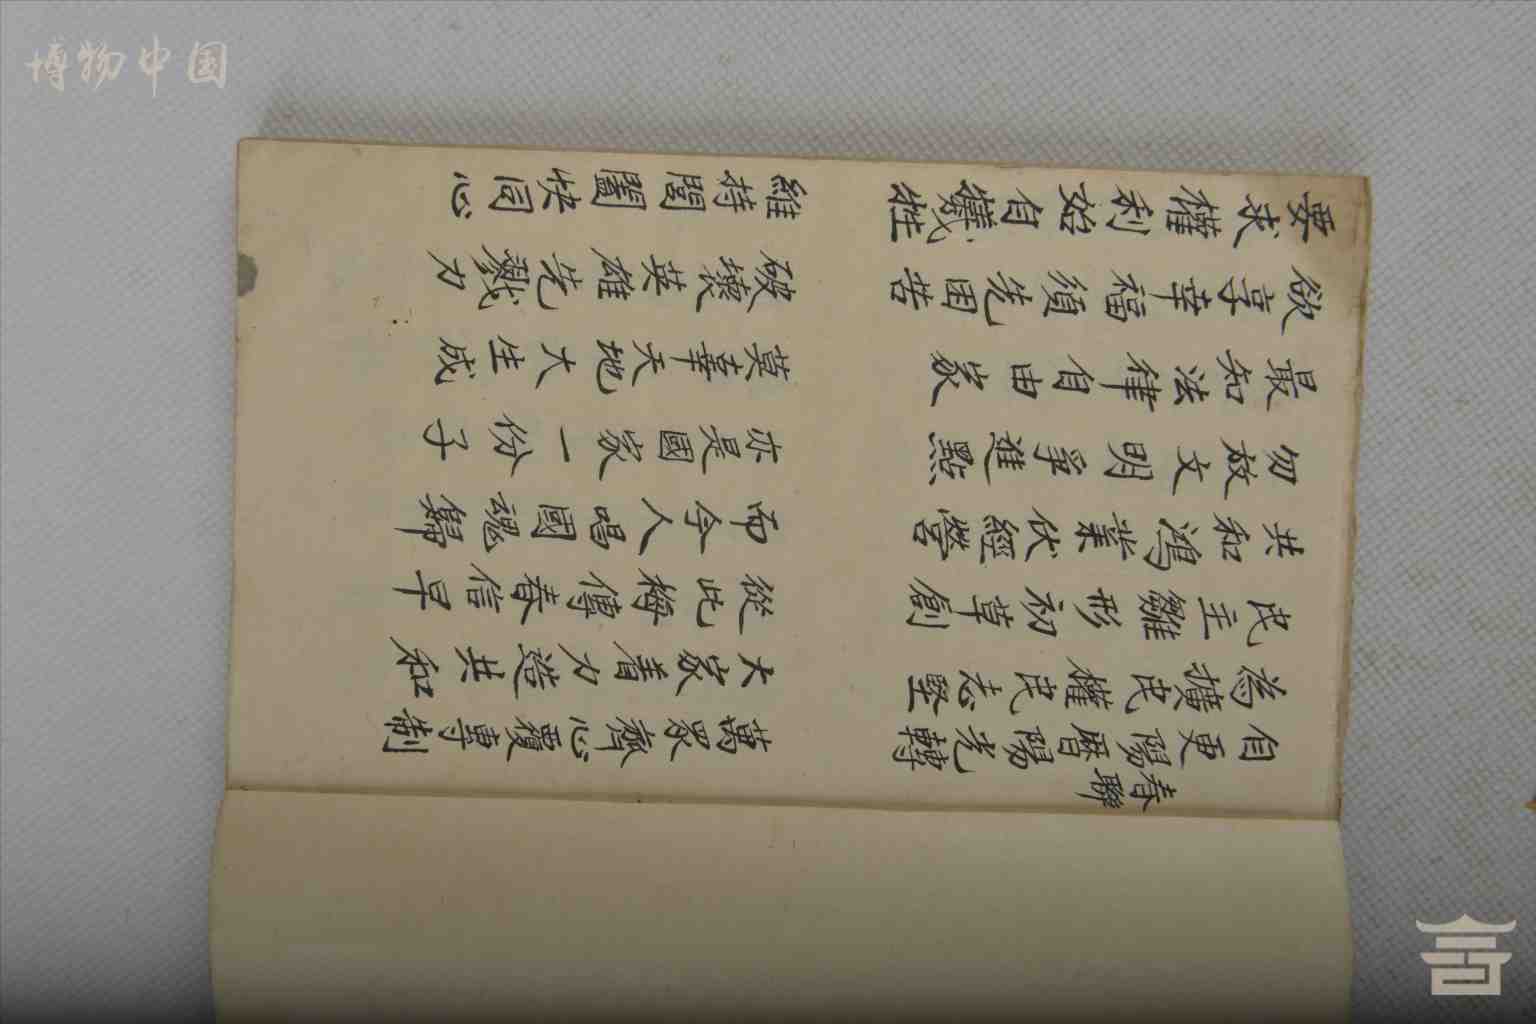 博物中国
春聯
自更陽曆陽光轉
為擴民權民志堅
民主雛形初草創
共和鴻業伏經營
勿放文明爭進點
最知法律自由家
欲享幸福須先困苦
要求權利始自犧牲
萬眾齊心覆專制
大家着力造共和
從此梅傳春信早
而今人唱國魂歸
亦是國家一份子
莫辜天地大生成
破壞英雄先戮力
維持閭闔快同心